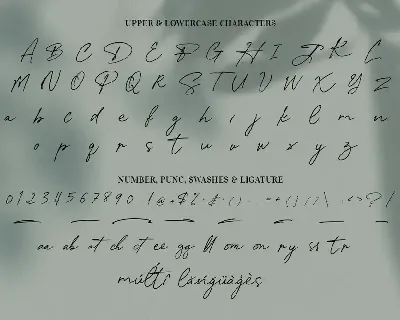 UPPER & LOWERCASE CHARACTERS
A B C D E F G H I J K L
M N O P Q R S T U V W X Y Z
a b c d e f g h i j k l m n
o p q r s t u v w x y z
NUMBER, PUNC, SWASHES & LIGATURE
0 1 2 3 4 5 6 7 8 9 0 ! @ # $ % ? /
aa ab at ch ct ee gg ll om on ry ss tr
múltí lañgüàgès